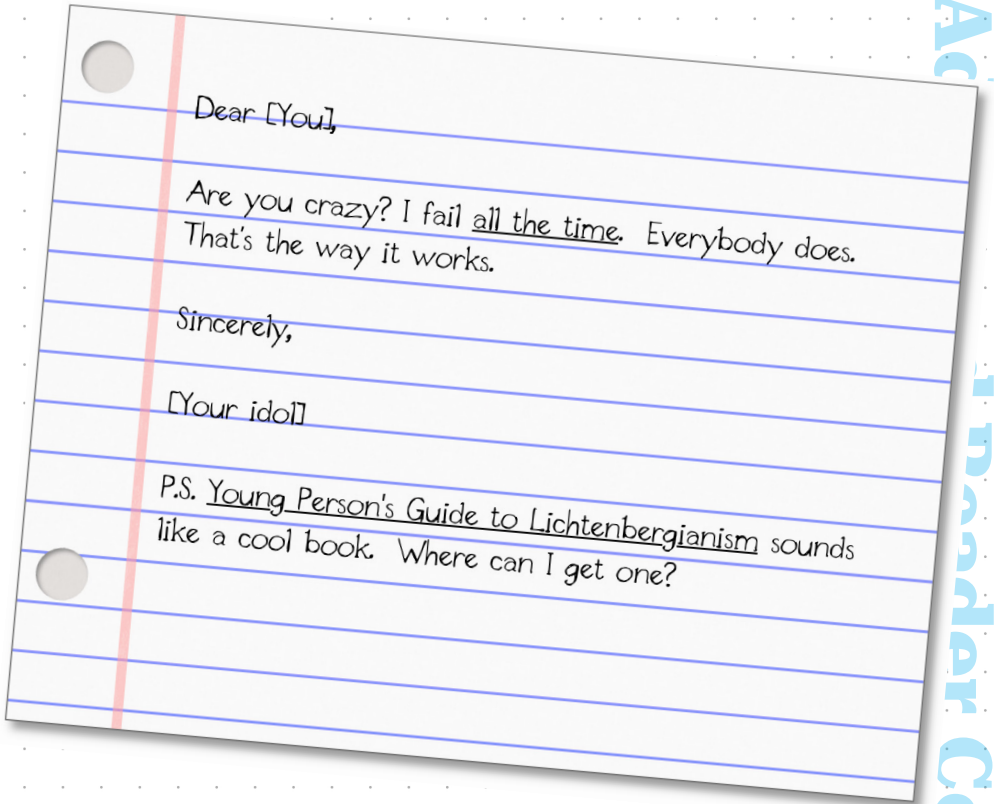 Dear [You],
Are you crazy? I fail all the time. Everybody does.
That's the way it works.
Sincerely,
[Your idol]
P.S. Young Person's Guide to Lichtenbergianism sounds
like a cool book. Where can I get one?